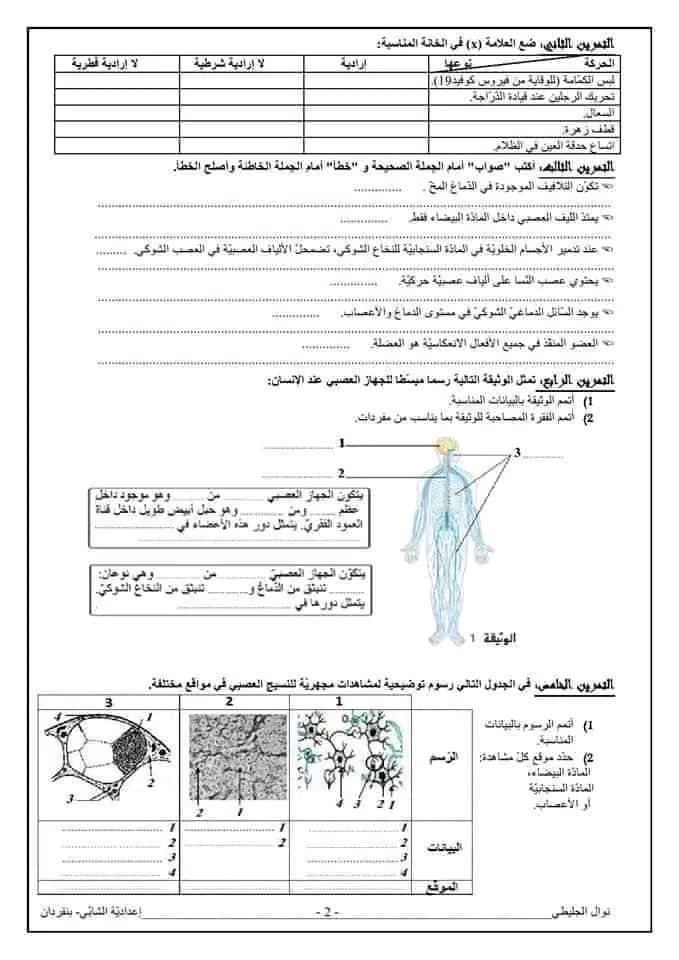 التمرين الثاني، ضع العلامة (x) في الخانة المناسبة:
الحركة نوعها إرادية لا إرادية شرطية لا إرادية فطرية
لبس الكمّامة (للوقاية من فيروس كوفيد19).
تحريك الرجلين عند قيادة الدّرّاجة.
السعال.
قطف زهرة.
اتساع حدقة العين في الظلام.
التمرين الثالث، أكتب "صواب" أمام الجملة الصحيحة و "خطأ" أمام الجملة الخاطئة وأصلح الخطأ.
تكوّن التلافيف الموجودة في الدّماغ المخّ . .............
يمتدّ الليف العصبي داخل المادّة البيضاء فقط. .............
عند تدمير الأجسام الخلويّة في المادّة السنجابيّة للنخاع الشوكي، تضمحلّ الألياف العصبيّة في العصب الشوكي. .........
يحتوي عصب النّسا على ألياف عصبيّة حركيّة. .............
يوجد السّائل الدماغيّ الشوكيّ في مستوى الدماغ والأعصاب. .............
العضو المنفّذ في جميع الأفعال الانعكاسيّة هو العضلة. .............
التمرين الرابع، تمثل الوثيقة التالية رسما مبسّطا للجهاز العصبي عند الإنسان:
1) أتمم الوثيقة بالبيانات المناسبة.
2) أتمم الفقرة المصاحبة للوثيقة بما يناسب من مفردات.
1 ....................
2 ....................
3 .............
يتكون الجهاز العصبي ............ من ............ وهو موجود داخل
عظم ........ ومن ............ وهو حبل أبيض طويل داخل قناة
العمود الفقريّ. يتمثل دور هذه الأعضاء في ....................
........................................
يتكوّن الجهاز العصبيّ ............ من ............ وهي نوعان:
............ تنبثق من الدّماغ و............ تنبثق من النخاع الشوكيّ.
يتمثل دورها في ..............................
الوثيقة 1
التمرين الخامس، في الجدول التالي رسوم توضيحية لمشاهدات مجهريّة للنسيج العصبي في مواقع مختلفة.
1) أتمم الرسوم بالبيانات
المناسبة.
2) حدّد موقع كلّ مشاهدة:
المادّة البيضاء،
المادّة السنجابيّة
أو الأعصاب.
1 2 3
الرّسم
4 3 2 1
2 1
1
2
3 4
البيانات
1 .................... 1 .................... 1 ....................
2 .................... 2 .................... 2 ....................
3 .................... 3 ....................
4 .................... 4 ....................
الموقع
نوال الجليطي - 2 - إعداديّة الشابّي- بنقردان